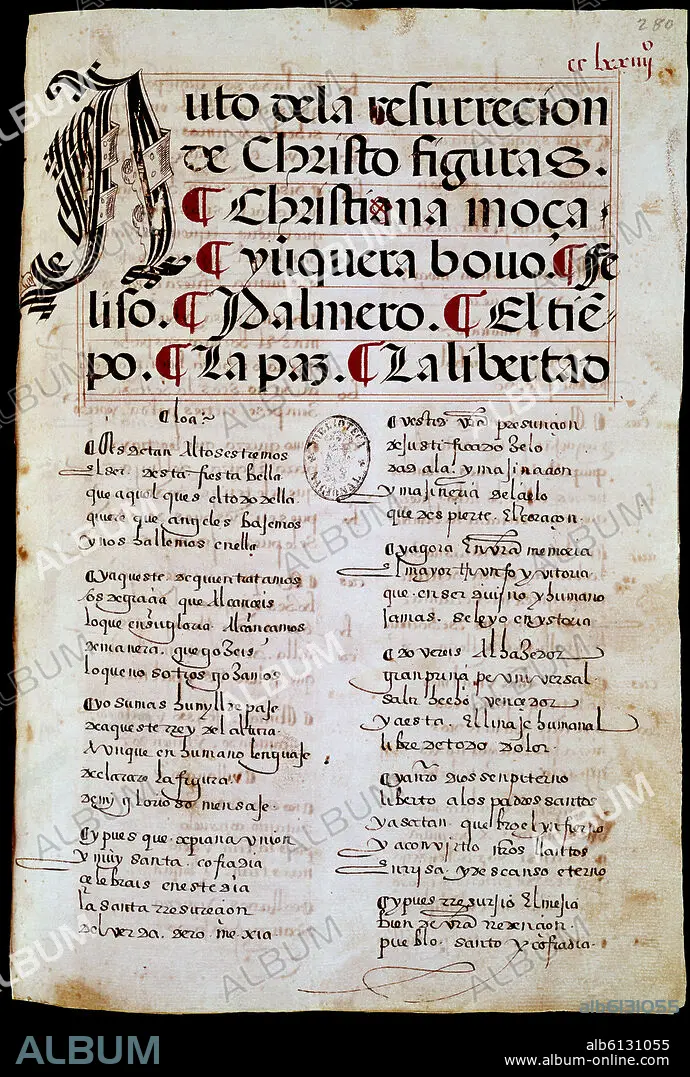 280
cc lxxiiijº
Auto dela resurrecion
de Christo figuras.
¶ Christiana moça
¶ yũquera bovo. ¶ fe
liso. ¶ Palmero. ¶ El tiẽ-
po. ¶ La paz. ¶ La libertad
¶ loa
¶ Es de tan altos estremos
el ser desta fiesta bella
que aquel ques el todo della
quiere que angeles bajemos
y nos hallemos enella
¶ yaqueste dequien tratamos
os de graçia que alcançeis
lo que en su gloria alcançamos
de manera que gozeis
lo que nosotros gozamos
¶ yo su mas humyllde paje
de aqueste rrey del altura
aunque en humano lenguaje
declarare la figura
de my glorioso mensaje.
¶ y pues que xpiana vnion
y muy santa cofradia
çelebrais en este dia
la santa rresureçion
del verdadero mexia
¶ vestid vrã presunçion
de justificado zelo
dad ala ymajinaçion
y majineria del çielo
que despierte el coraçon.
¶ yagora en vrã memoria
el mayor triunfo y vitoria
que en ser diujno y humano
jamas se leyo en ystoria
¶ do vereis al hazedor
gran prinçipe vniversal
salir hecho vençedor
y a esta el linaje humanal
libre de todo dolor.
¶ y a nrõ dios senpiterno
liberto a los padres santos
y a satan quebro el ynfierno
y a convirtio nrõs llantos
en rrisa y descanso eterno
¶ y pues rresurjio el mesia
bien de vrã rredençion
pueblo santo y cofradia.
BIBLIOTECA NACIONAL
ALBUM
alb6131055
ALBUM
alb6131055
www.album-online.com